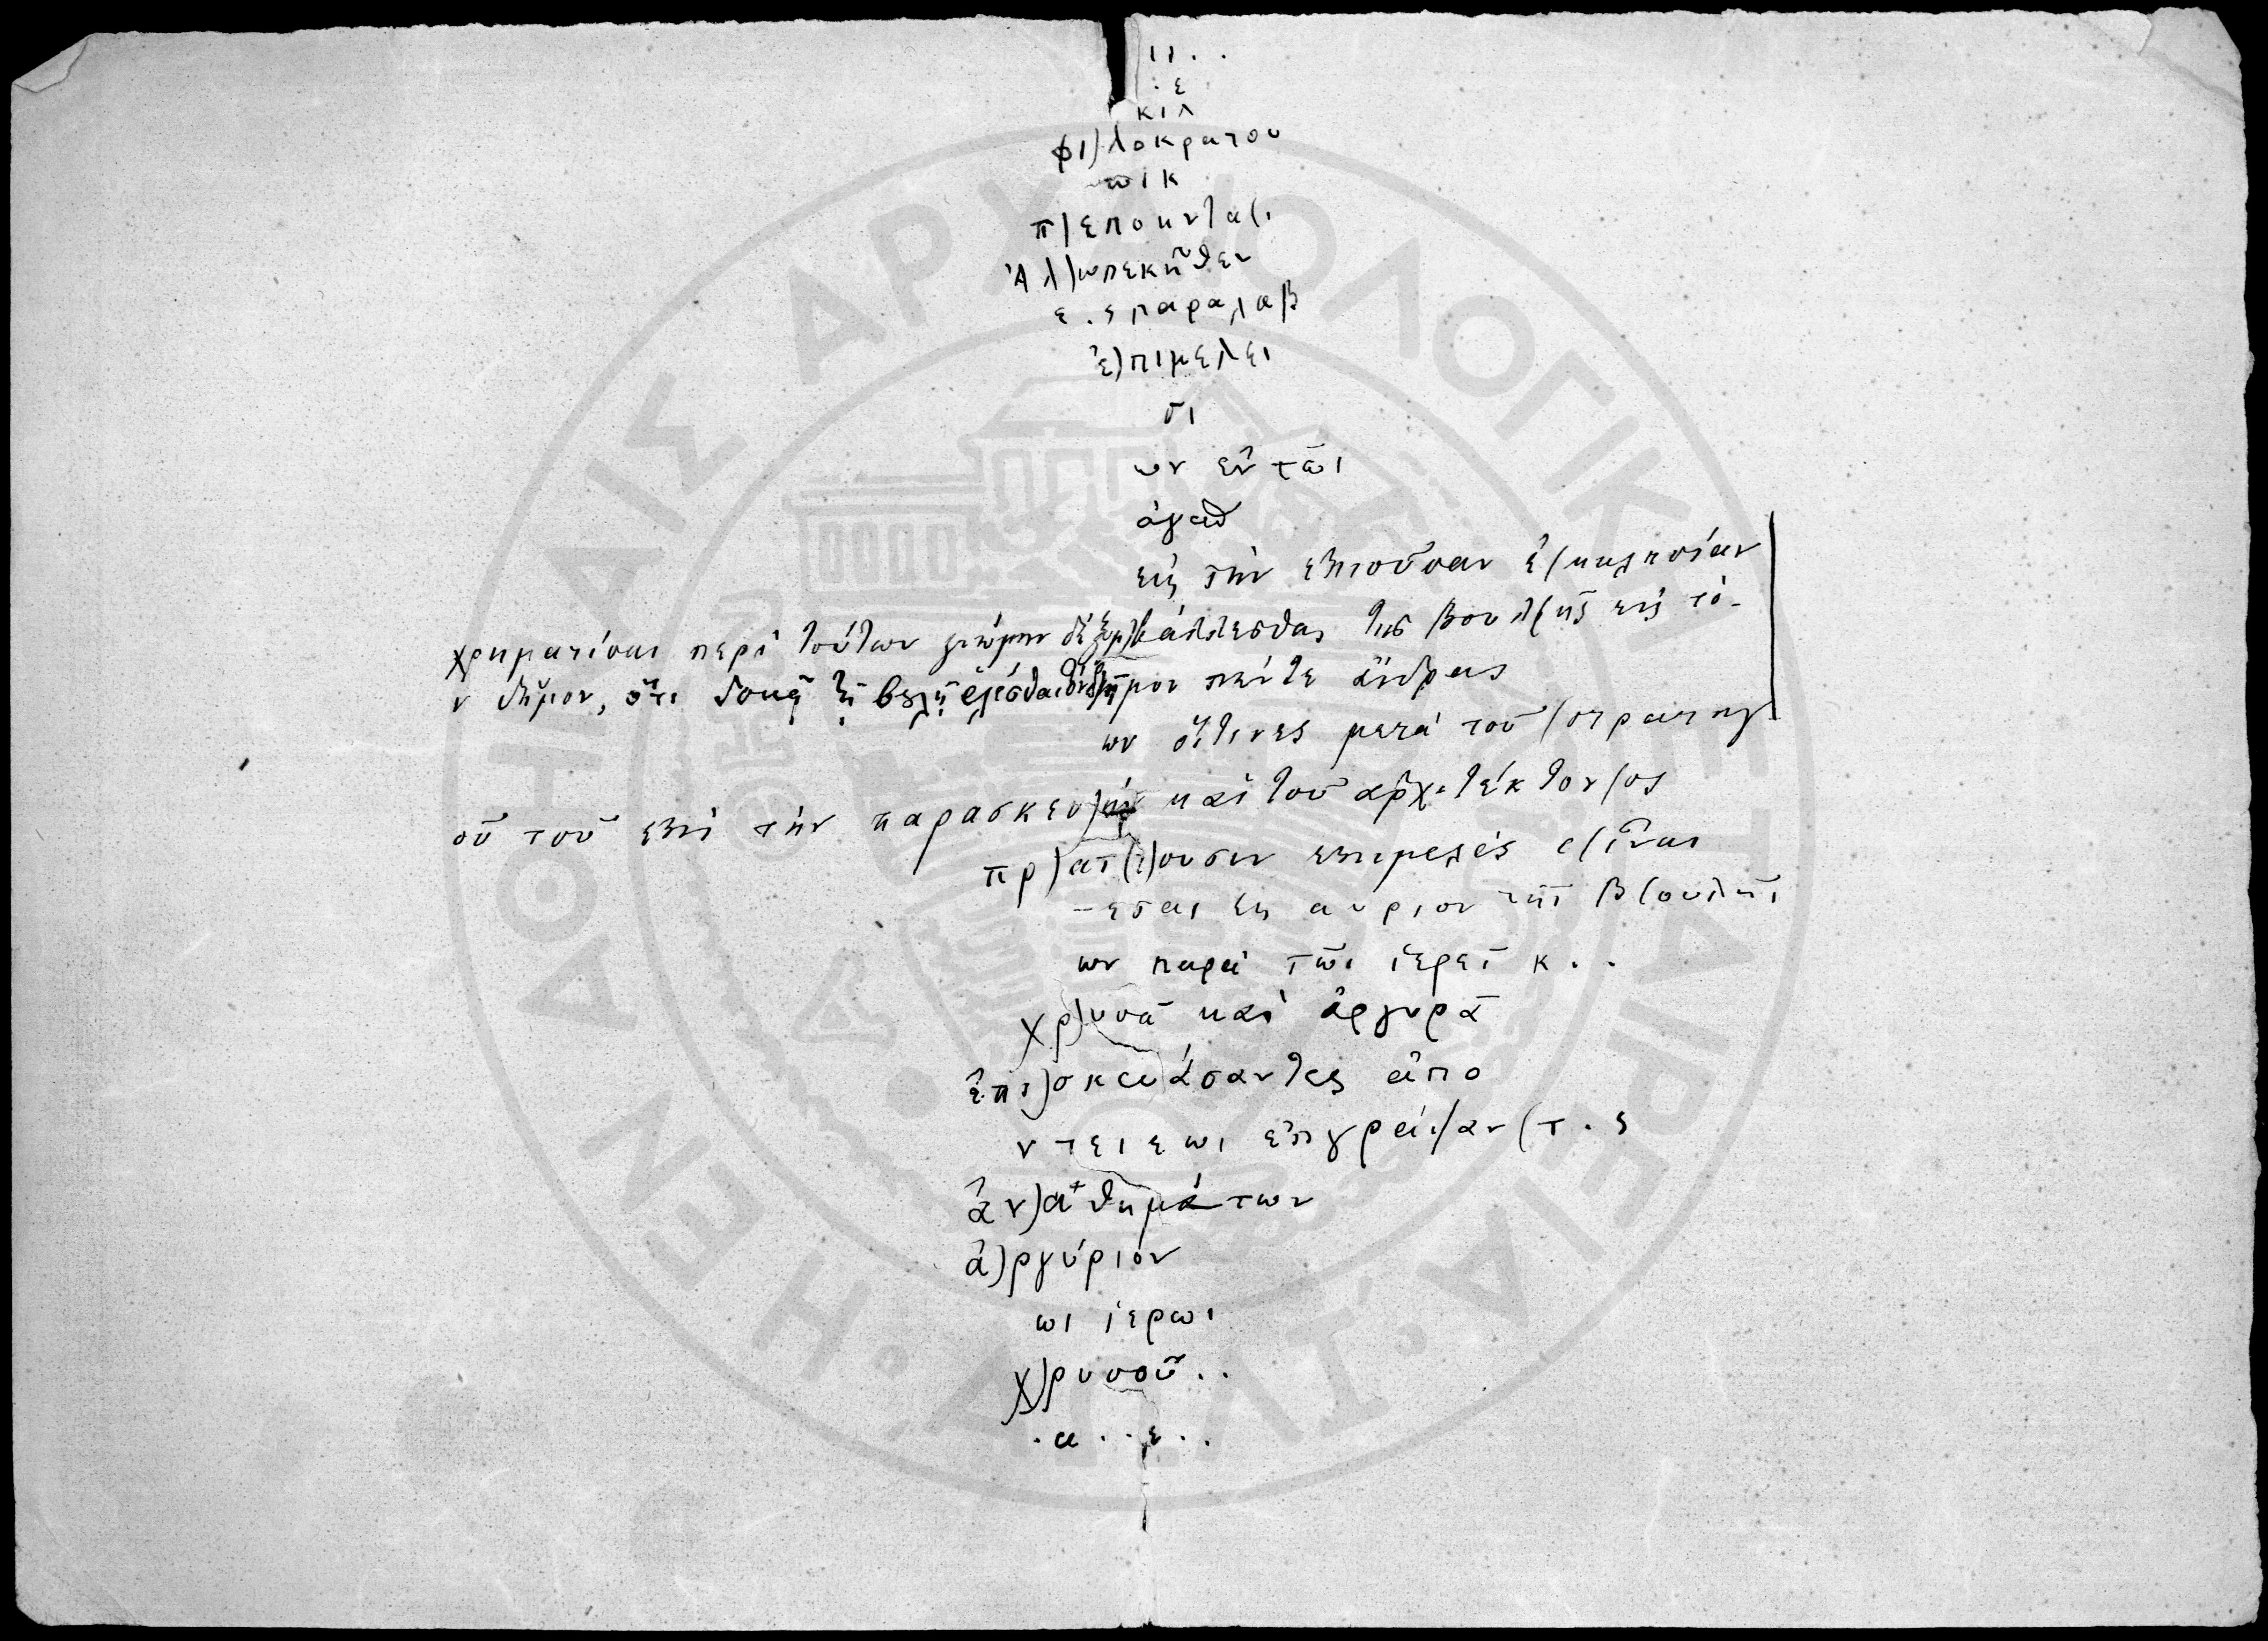 ιι . .
. ε
κιλ
φι)λοκρατου
ωικ
π)εποιηνται(.
Ἀλ)ωπεκῆθεν
ε . ς παραλαβ
ἐ)πιμελει
σι
ων ἐν τῶι
ἀγαθ
εἰς τὴν ἐπιοῦσαν ἐ(κκλησίαν
χρηματίσαι περὶ τούτων γνώμην δὲ ξυμ)βάλλεσθαι τῆς βουλ(ῆς εἰς τὸ-
ν δῆμον, ὅτι δοκῆ τῆ βουλῆ ἑλέσθαι τὸν δῆμον πέντε ἄνδρας
ων οἵτινες μετὰ τοῦ (στρατηγ
οῦ τοῦ ἐπὶ τὴν παρασκευ)ὴν καὶ τοῦ ἀρχιτέκτον(ος
πρ)ατ(τ)ουσιν ἐπιμελὲς ε(ἶναι
-εσαι εις αυριον τῆι β(ουλῆι
ων παρὰ τῶι ἱερεῖ κ . .
χρ)υσᾶ καὶ ἀργυρᾶ
ἐπι)σκευάσαντες ἀπο
ντειεωι ἐπιγράψαν(τ . ς
ἀν)αθημάτων
ἀ)ργύριον
ωι ἱερωι
χ)ρυσοῦ . .
. α . . ε . .
ΕΝ ΑΘΗΝΑΙΣ ΑΡΧΑΙΟΛΟΓΙΚΗ ΕΤΑΙΡΕΙΑ